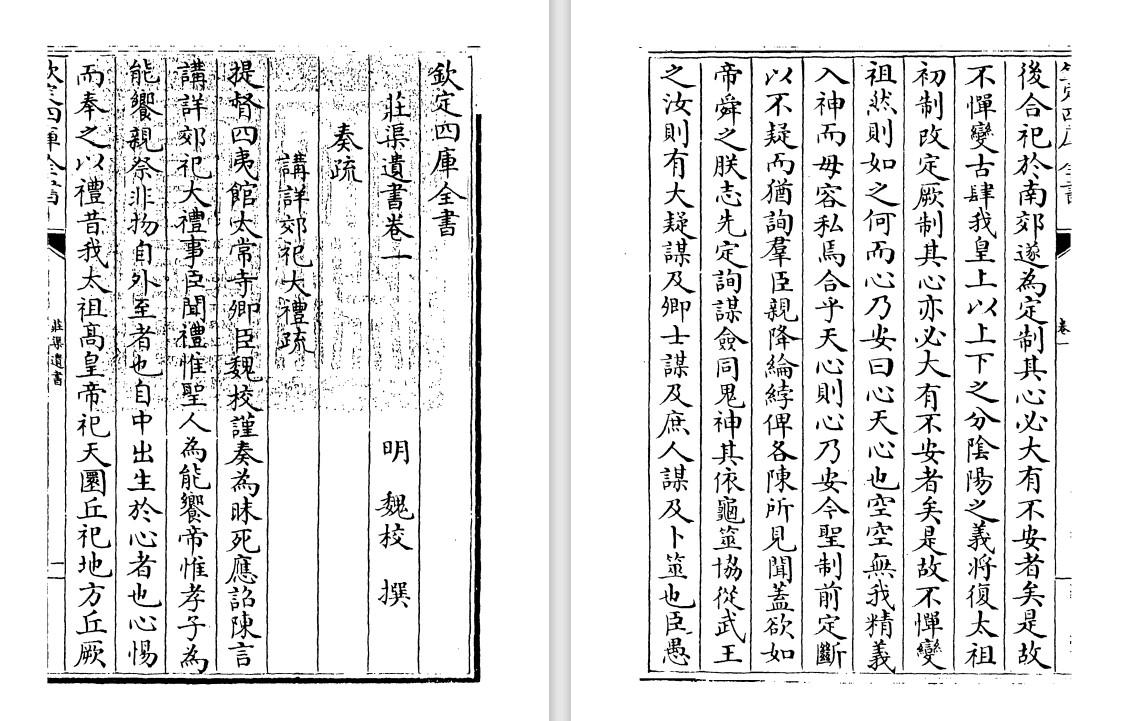 欽定四庫全書
莊渠遺書卷一
明 魏校 撰
奏疏
講詳郊祀大禮疏
提督四夷館太常寺卿臣魏校謹奏為昧死應詔陳言
講詳郊祀大禮事臣聞禮惟聖人為能饗帝惟孝子為
能饗親祭非物自外至者也自中出生於心者也心惕
而奉之以禮昔我太祖高皇帝祀天圜丘祀地方丘厥
欽定四庫全書
莊渠遺書
一
卷一
後合祀於南郊遂為定制其心必大有不安者矣是故
不憚變古肆我皇上以上下之分陰陽之義將復太祖
初制改定厥制其心亦必大有不安者矣是故不憚變
祖然則如之何而心乃安曰心天心也空空無我精義
入神而毋容私焉合乎天心則心乃安今聖制前定斷
以不疑而猶詢羣臣親降綸綍俾各陳所見聞蓋欲如
帝舜之朕志先定詢謀僉同鬼神其依龜筮協從武王
之汝則有大疑謀及卿士謀及庶人謀及卜筮也臣愚